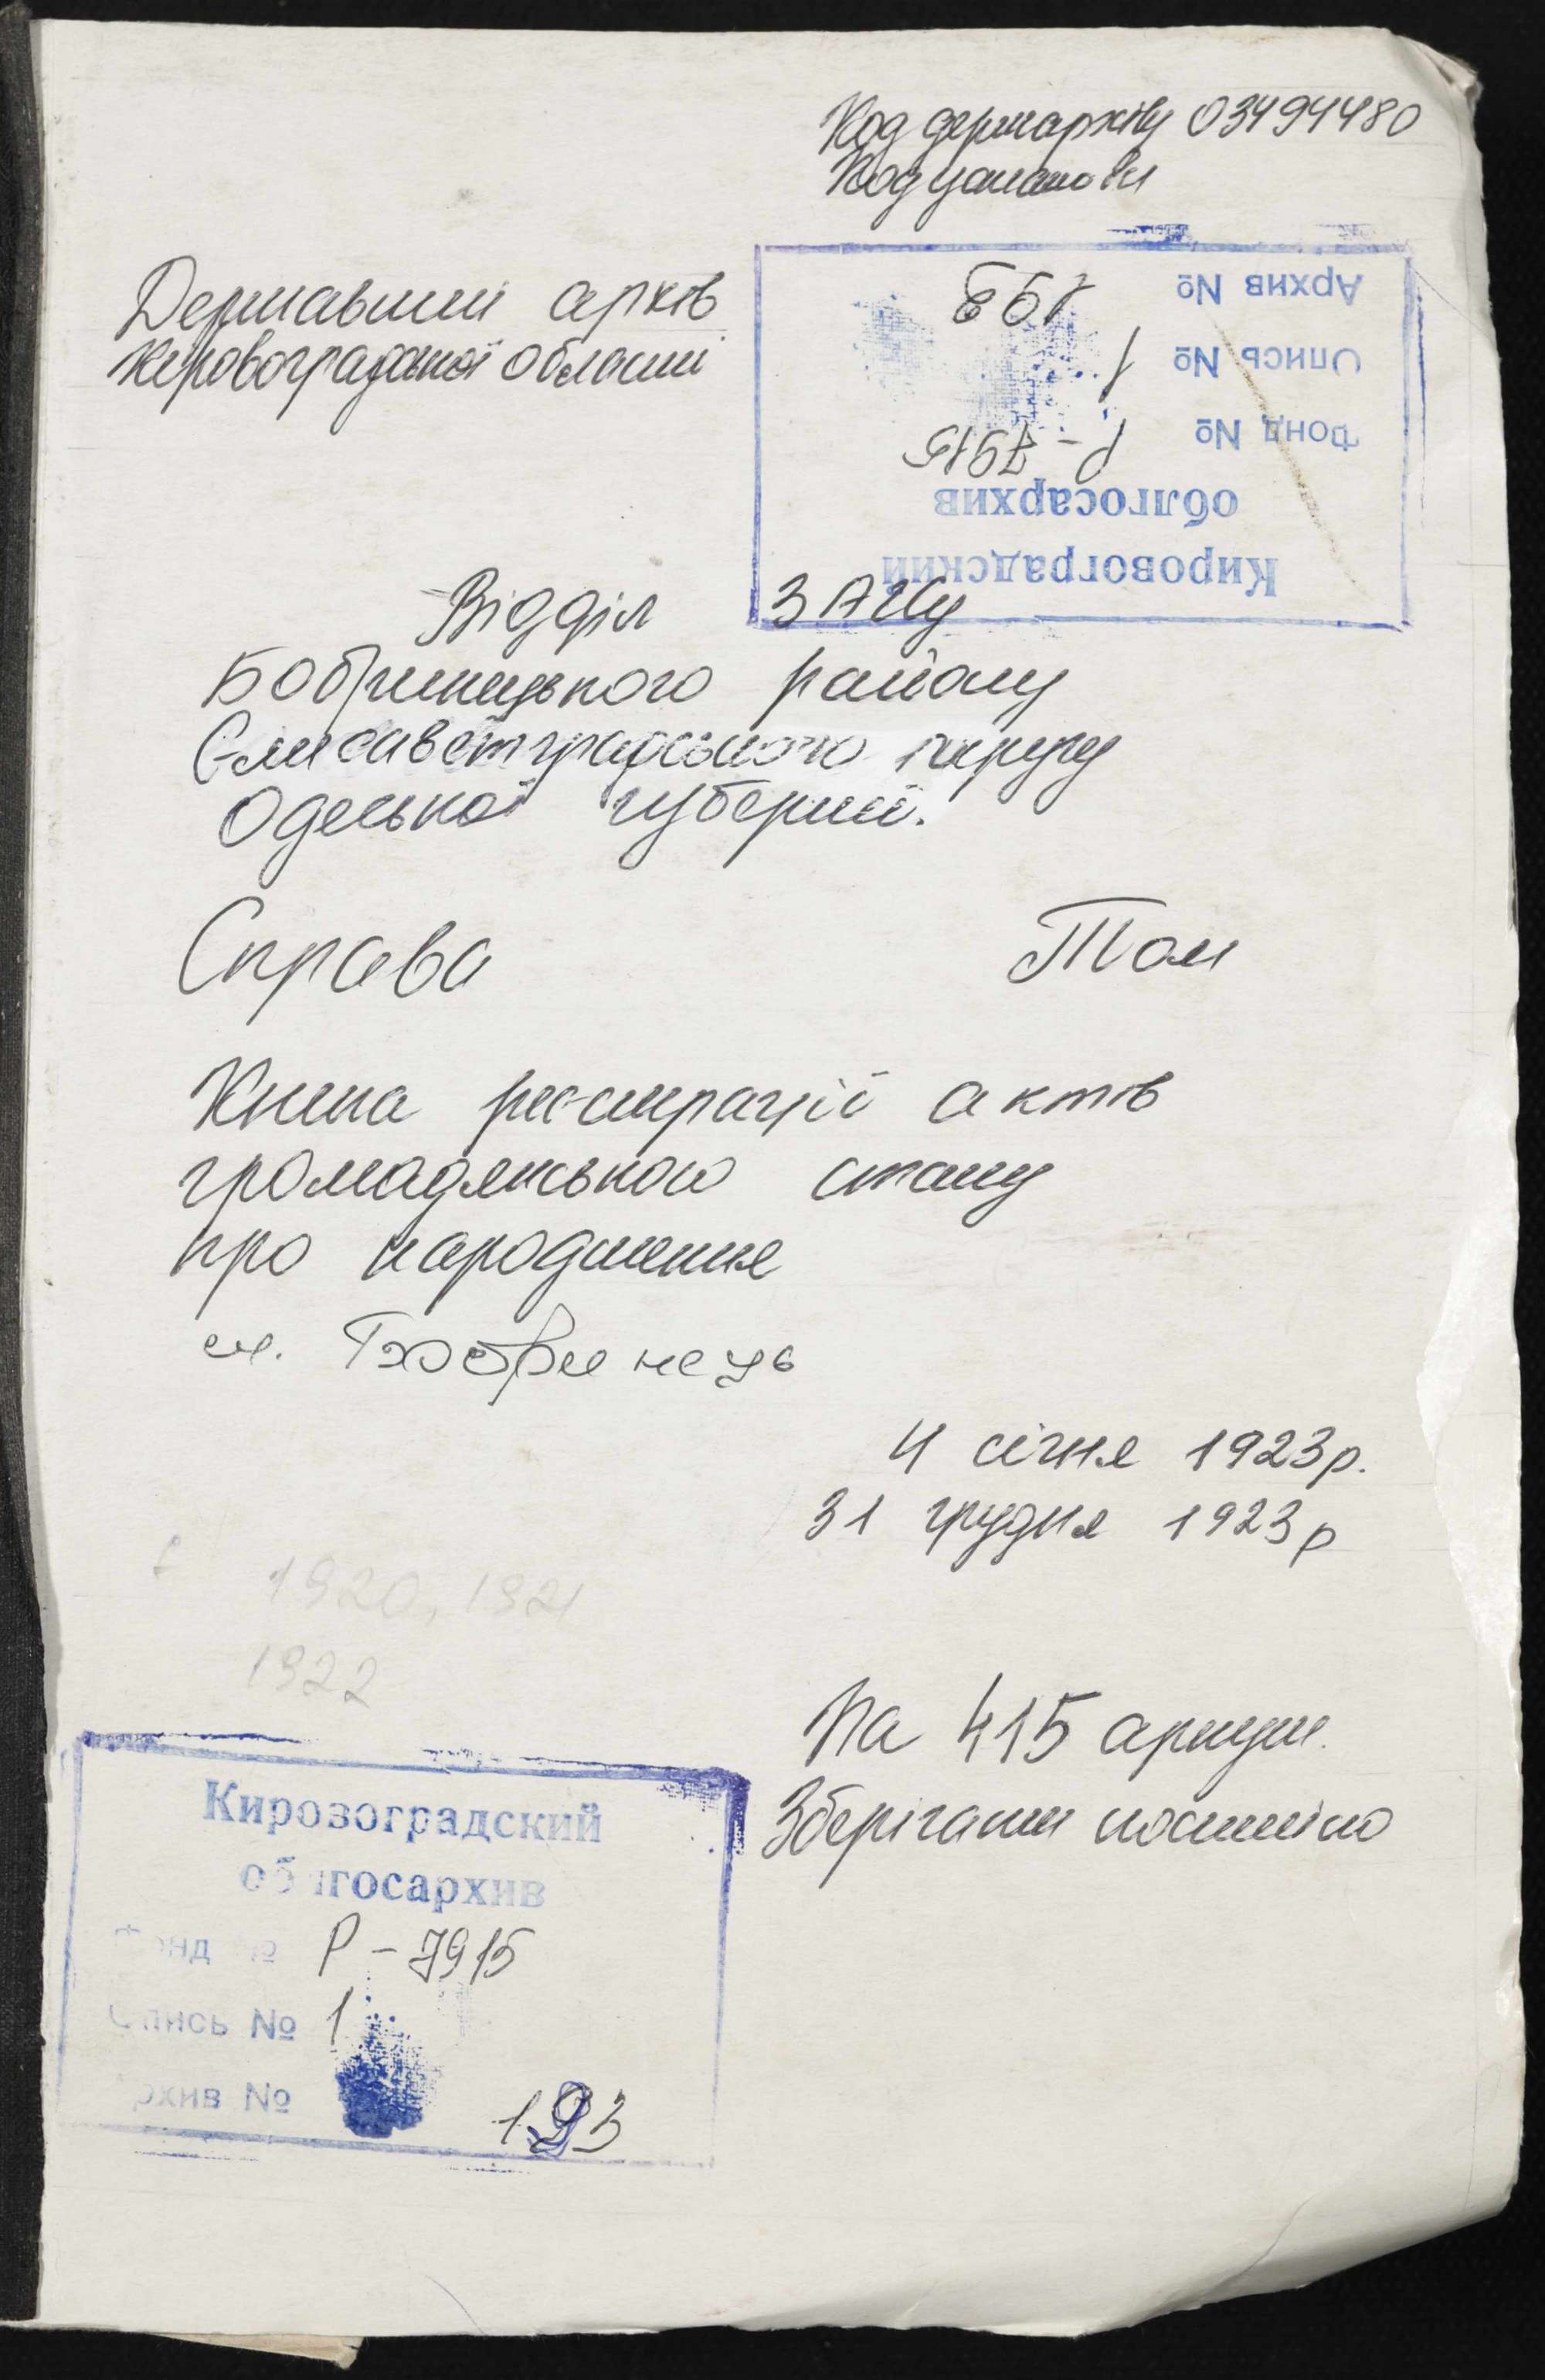 Код держархіву 03494480
Код установи
Державний архів
Кіровоградської області
Кировоградский
облгосархив
Фонд № Р-7915
Опись № 1
Архив № 193
Відділ ЗАГСу
Бобринецького району
Єлисаветградського округу
Одеської губернії.
Справа Том
Книга реєстрації актів
громадянського стану
про народження
м. Бобринець
4 січня 1923р.
31 грудня 1923р
1920, 1921
1922
На 415 аркуш.
Зберігати постійно
Кировоградский
облгосархив
Фонд № Р-7915
Опись № 1
Архив № 193